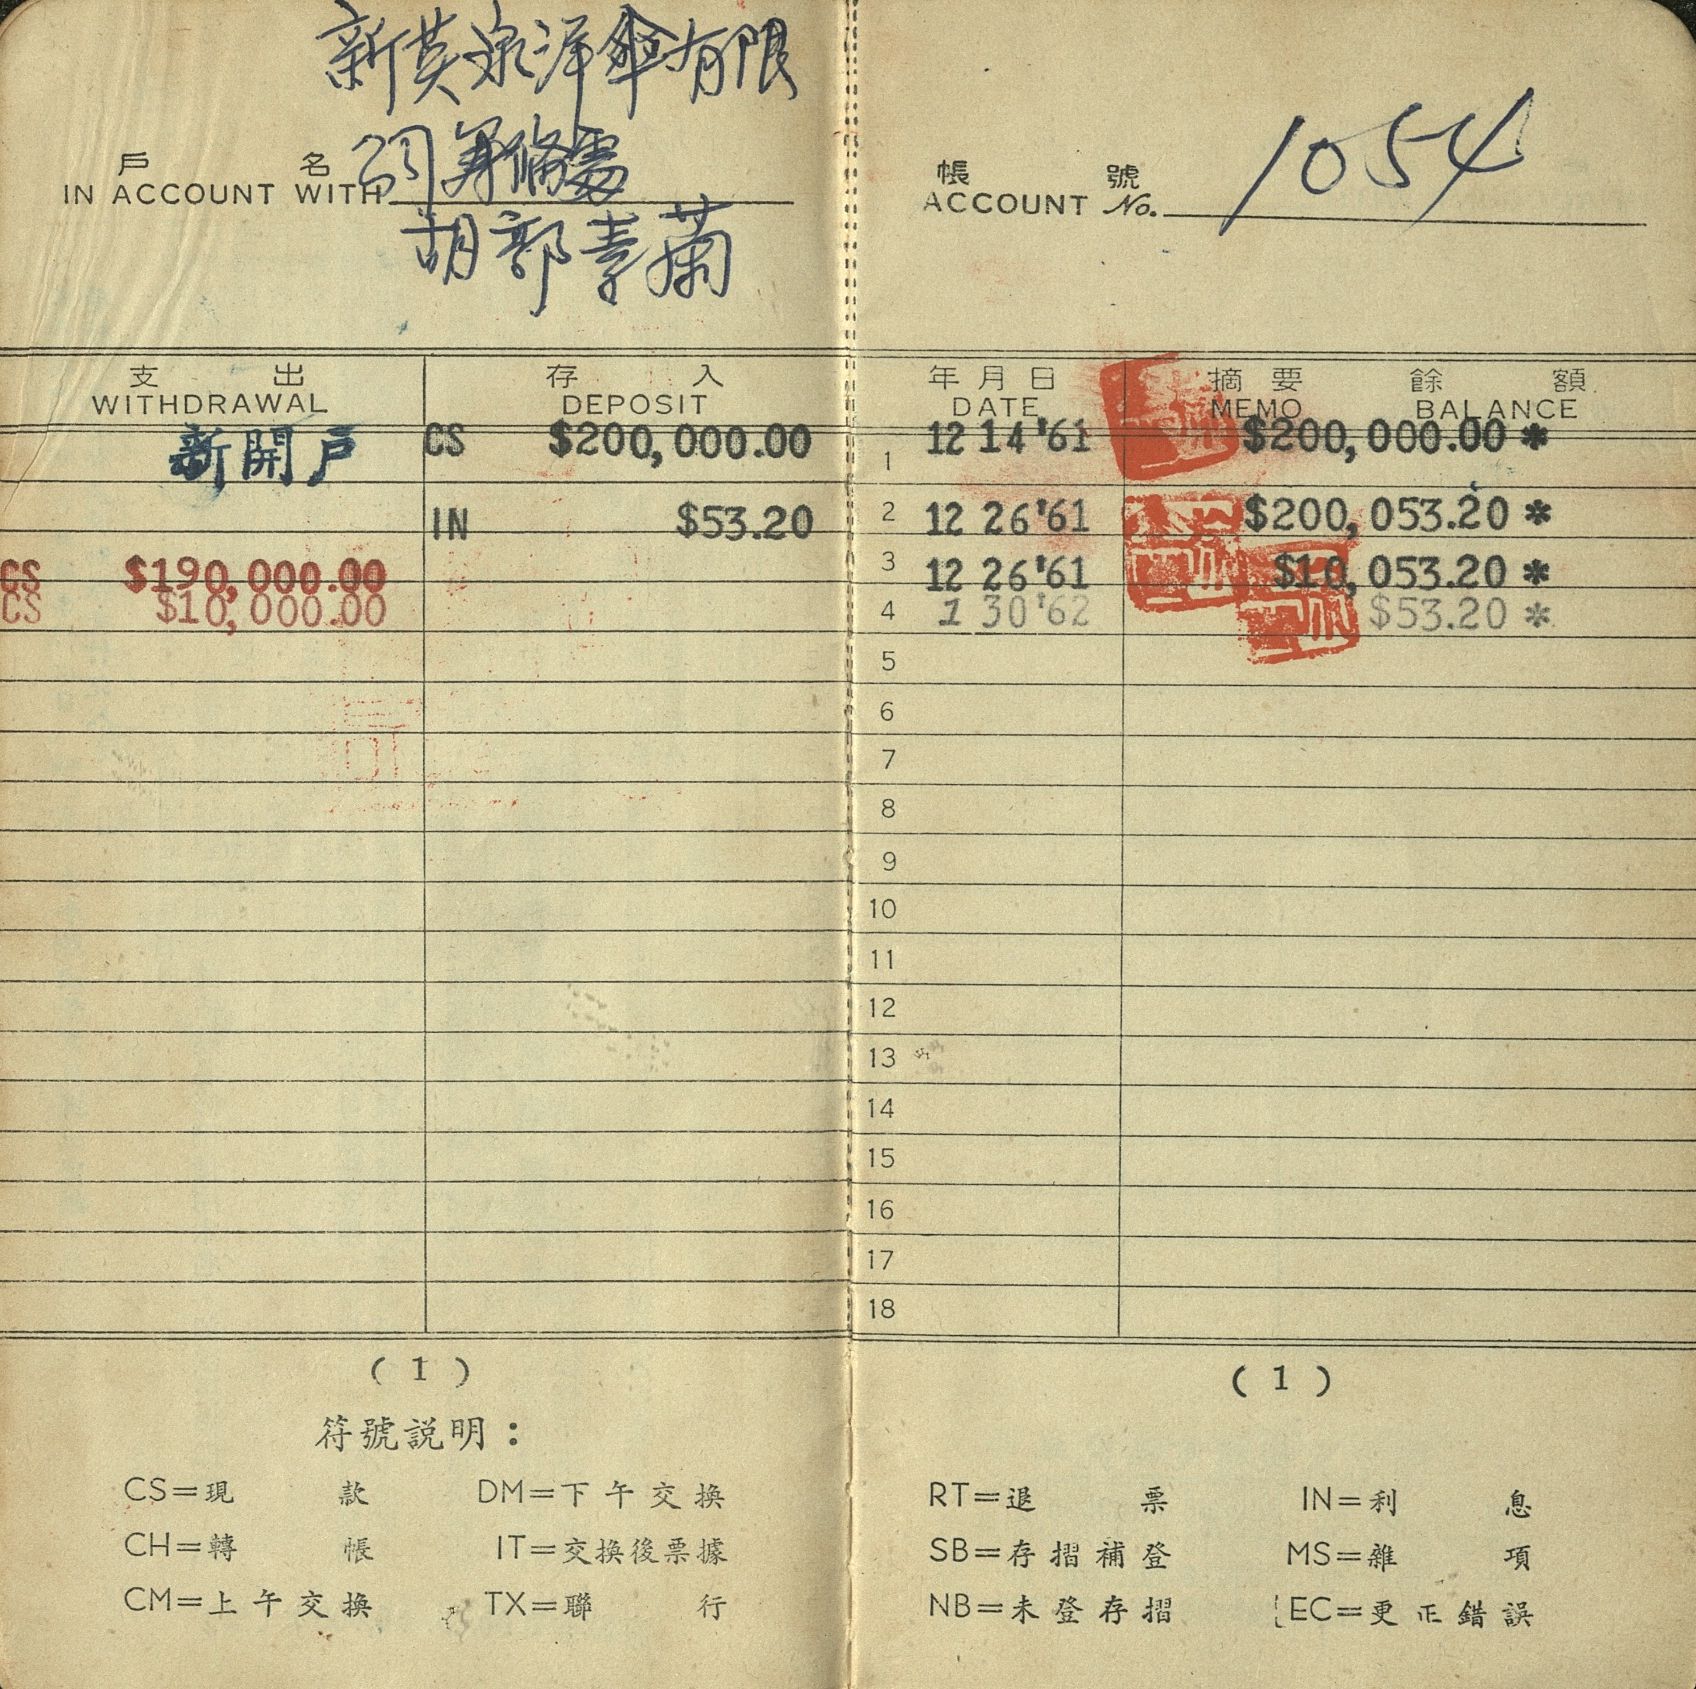 新英泉洋傘有限
司籌備處
胡郭素蘭
戶 名
IN ACCOUNT WITH
帳 號
ACCOUNT No. 1054
支 出 存 入 年月日 摘要 餘 額
WITHDRAWAL DEPOSIT DATE MEMO BALANCE
新開戶 CS $200,000.00 1 12 14 '61 $200,000.00 *
IN $53.20 2 12 26 '61 $200,053.20 *
CS $190,000.00 3 12 26 '61 $10,053.20 *
CS $10,000.00 4 1 30 '62 $53.20 *
5
6
7
8
9
10
11
12
13
14
15
16
17
18
( 1 ) ( 1 )
符號説明：
CS=現 款 DM=下午交換 RT=退 票 IN=利 息
CH=轉 帳 IT=交換後票據 SB=存摺補登 MS=雜 項
CM=上午交換 TX=聯 行 NB=未登存摺 EC=更正錯誤